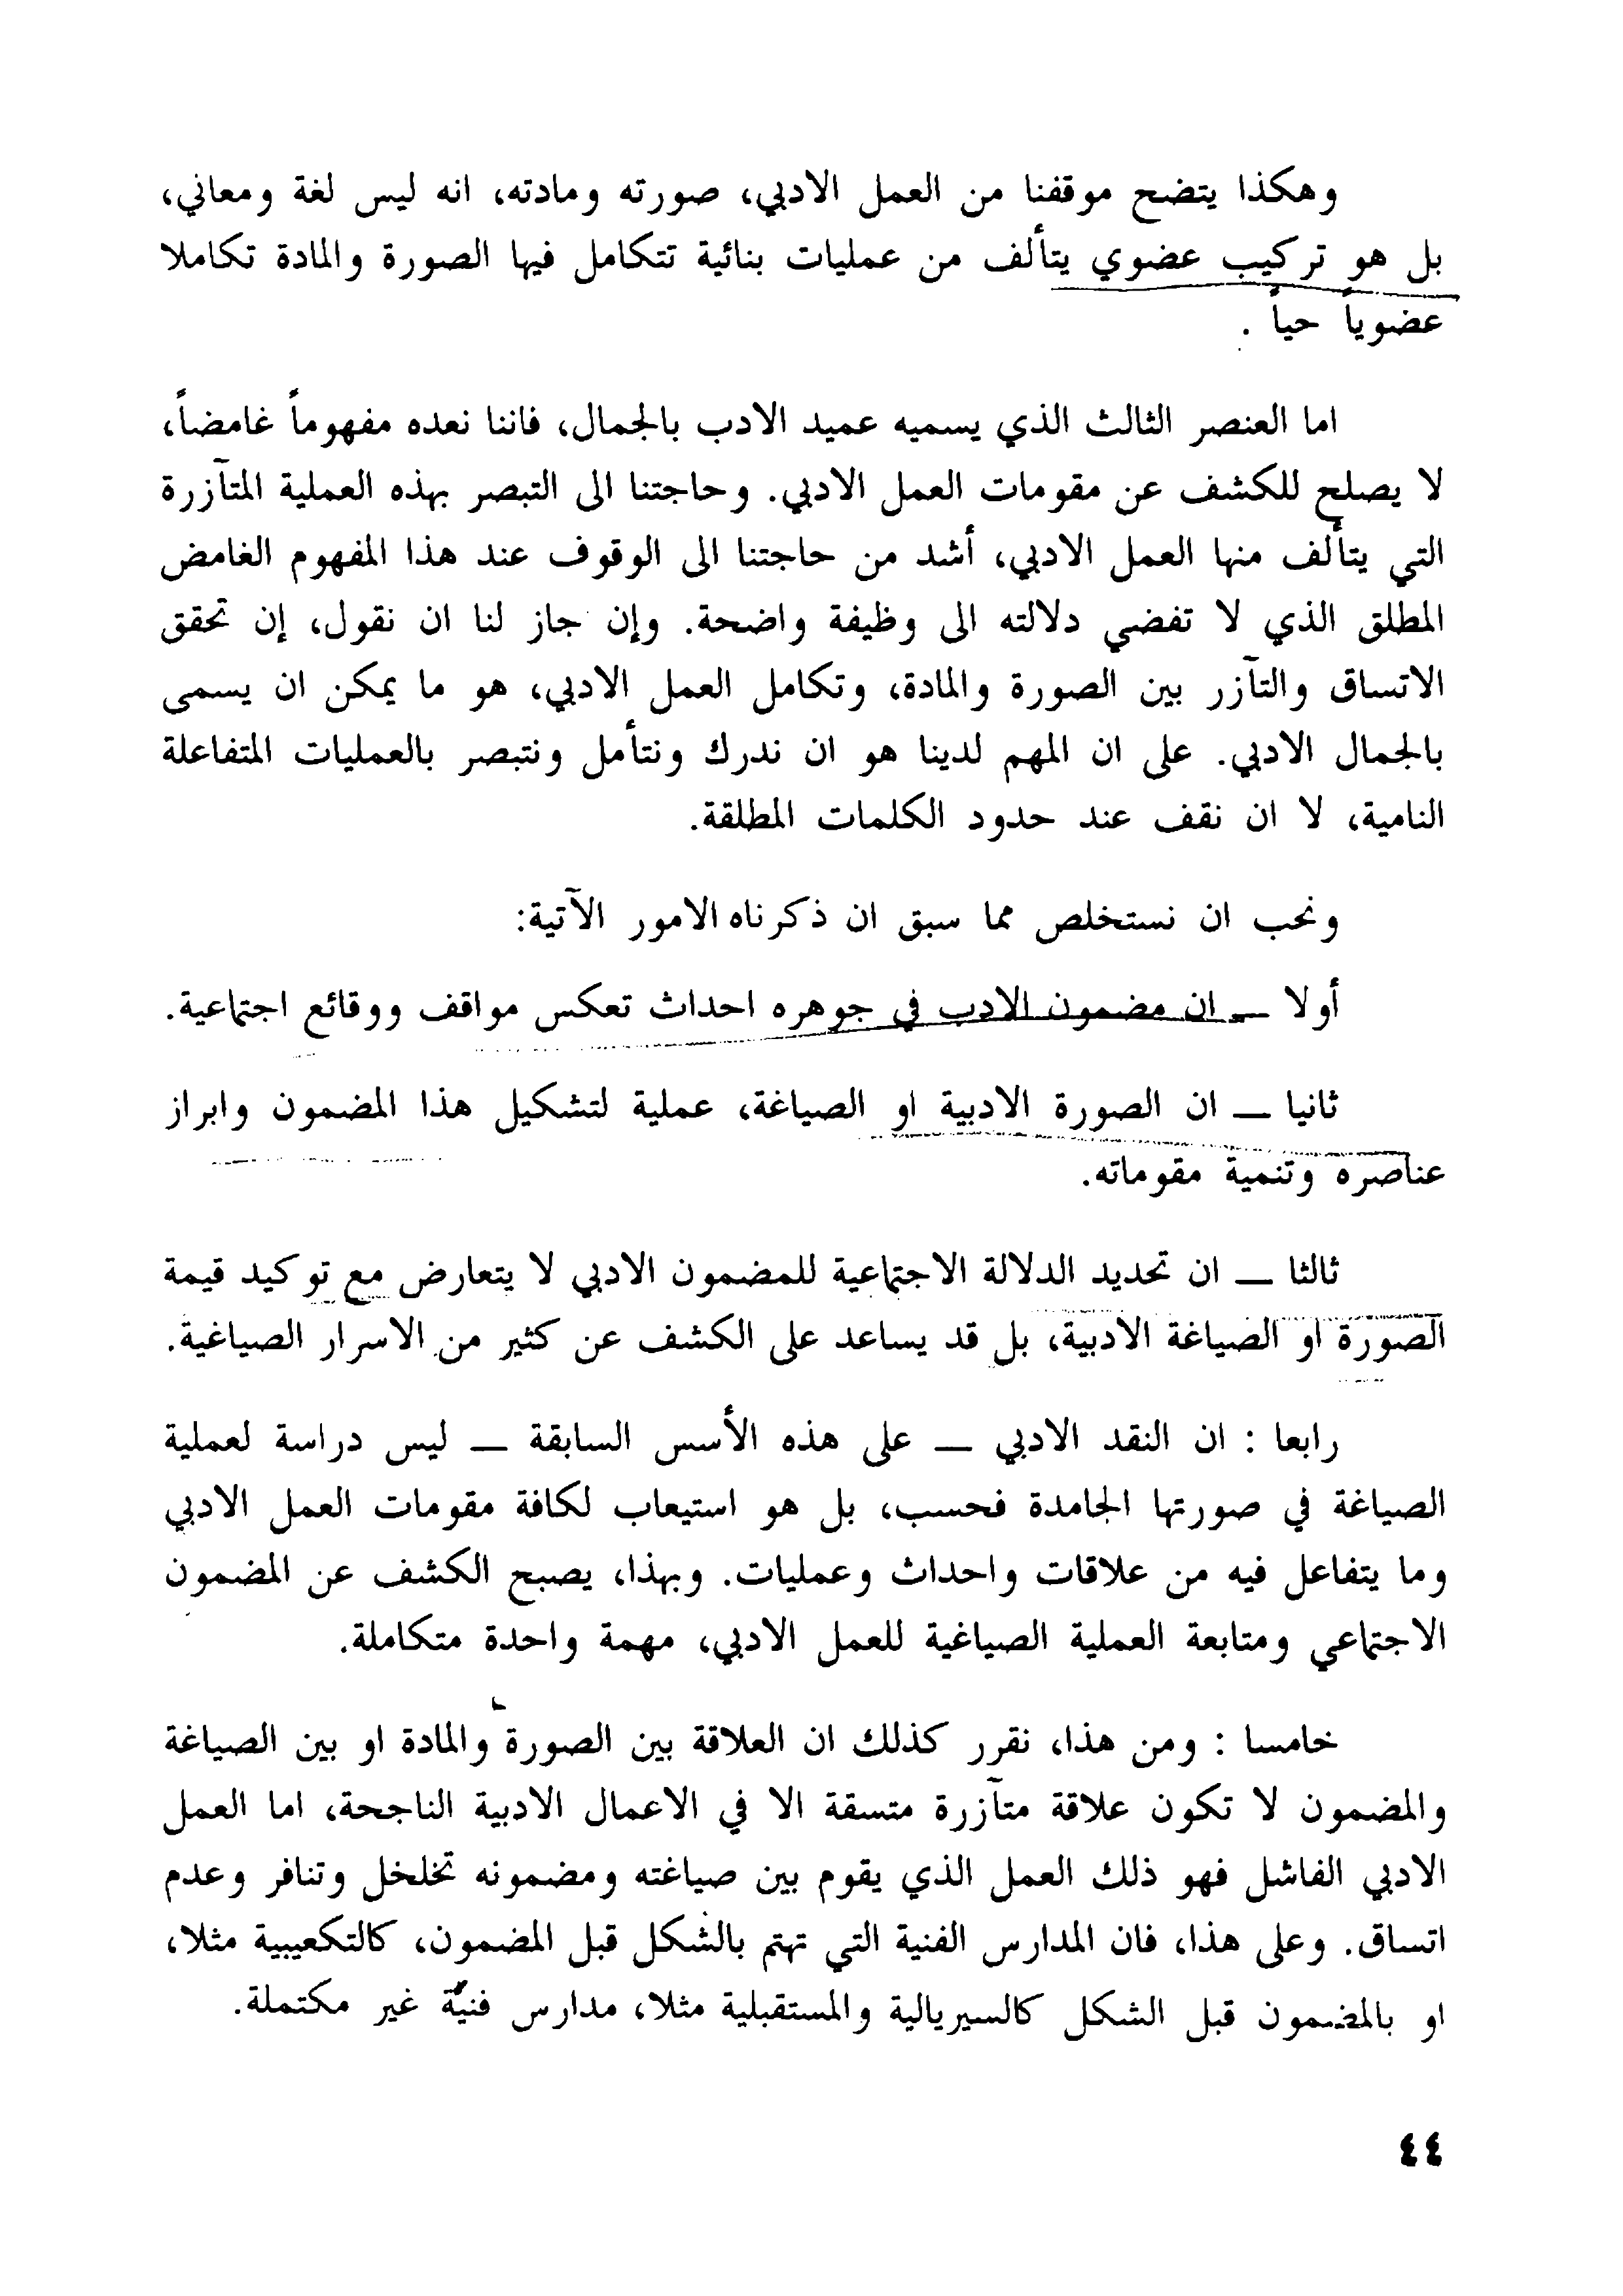 وهكذا يتضح موقفنا من العمل الادبي، صورته ومادته، انه ليس لغة ومعاني،
بل هو تركيب عضوي يتألف من عمليات بنائية تتكامل فيها الصورة والمادة تكاملا
عضوياً حياً .
اما العنصر الثالث الذي يسميه عميد الادب بالجمال، فاننا نعده مفهوماً غامضاً،
لا يصلح للكشف عن مقومات العمل الادبي. وحاجتنا الى التبصر بهذه العملية المتآزرة
التي يتألف منها العمل الادبي، أشد من حاجتنا الى الوقوف عند هذا المفهوم الغامض
المطلق الذي لا تفضي دلالته الى وظيفة واضحة. وإن جاز لنا ان نقول، إن تحقق
الاتساق والتآزر بين الصورة والمادة، وتكامل العمل الادبي، هو ما يمكن ان يسمى
بالجمال الادبي. على ان المهم لدينا هو ان ندرك ونتأمل ونتبصر بالعمليات المتفاعلة
النامية، لا ان نقف عند حدود الكلمات المطلقة.
ونحب ان نستخلص مما سبق ان ذكرناه الامور الآتية:
أولا — ان مضمون الادب في جوهره احداث تعكس مواقف ووقائع اجتماعية.
ثانيا — ان الصورة الادبية او الصياغة، عملية لتشكيل هذا المضمون وابراز
عناصره وتنمية مقوماته.
ثالثا — ان تحديد الدلالة الاجتماعية للمضمون الادبي لا يتعارض مع توكيد قيمة
الصورة او الصياغة الادبية، بل قد يساعد على الكشف عن كثير من الاسرار الصياغية.
رابعا : ان النقد الادبي — على هذه الأسس السابقة — ليس دراسة لعملية
الصياغة في صورتها الجامدة فحسب، بل هو استيعاب لكافة مقومات العمل الادبي
وما يتفاعل فيه من علاقات واحداث وعمليات. وبهذا، يصبح الكشف عن المضمون
الاجتماعي ومتابعة العملية الصياغية للعمل الادبي، مهمة واحدة متكاملة.
خامسا : ومن هذا، نقرر كذلك ان العلاقة بين الصورة والمادة او بين الصياغة
والمضمون لا تكون علاقة متآزرة متسقة الا في الاعمال الادبية الناجحة، اما العمل
الادبي الفاشل فهو ذلك العمل الذي يقوم بين صياغته ومضمونه تخلخل وتنافر وعدم
اتساق. وعلى هذا، فان المدارس الفنية التي تهتم بالشكل قبل المضمون، كالتكعيبية مثلا،
او بالمضمون قبل الشكل كالسيريالية والمستقبلية مثلا، مدارس فنيّة غير مكتملة.
٤٤